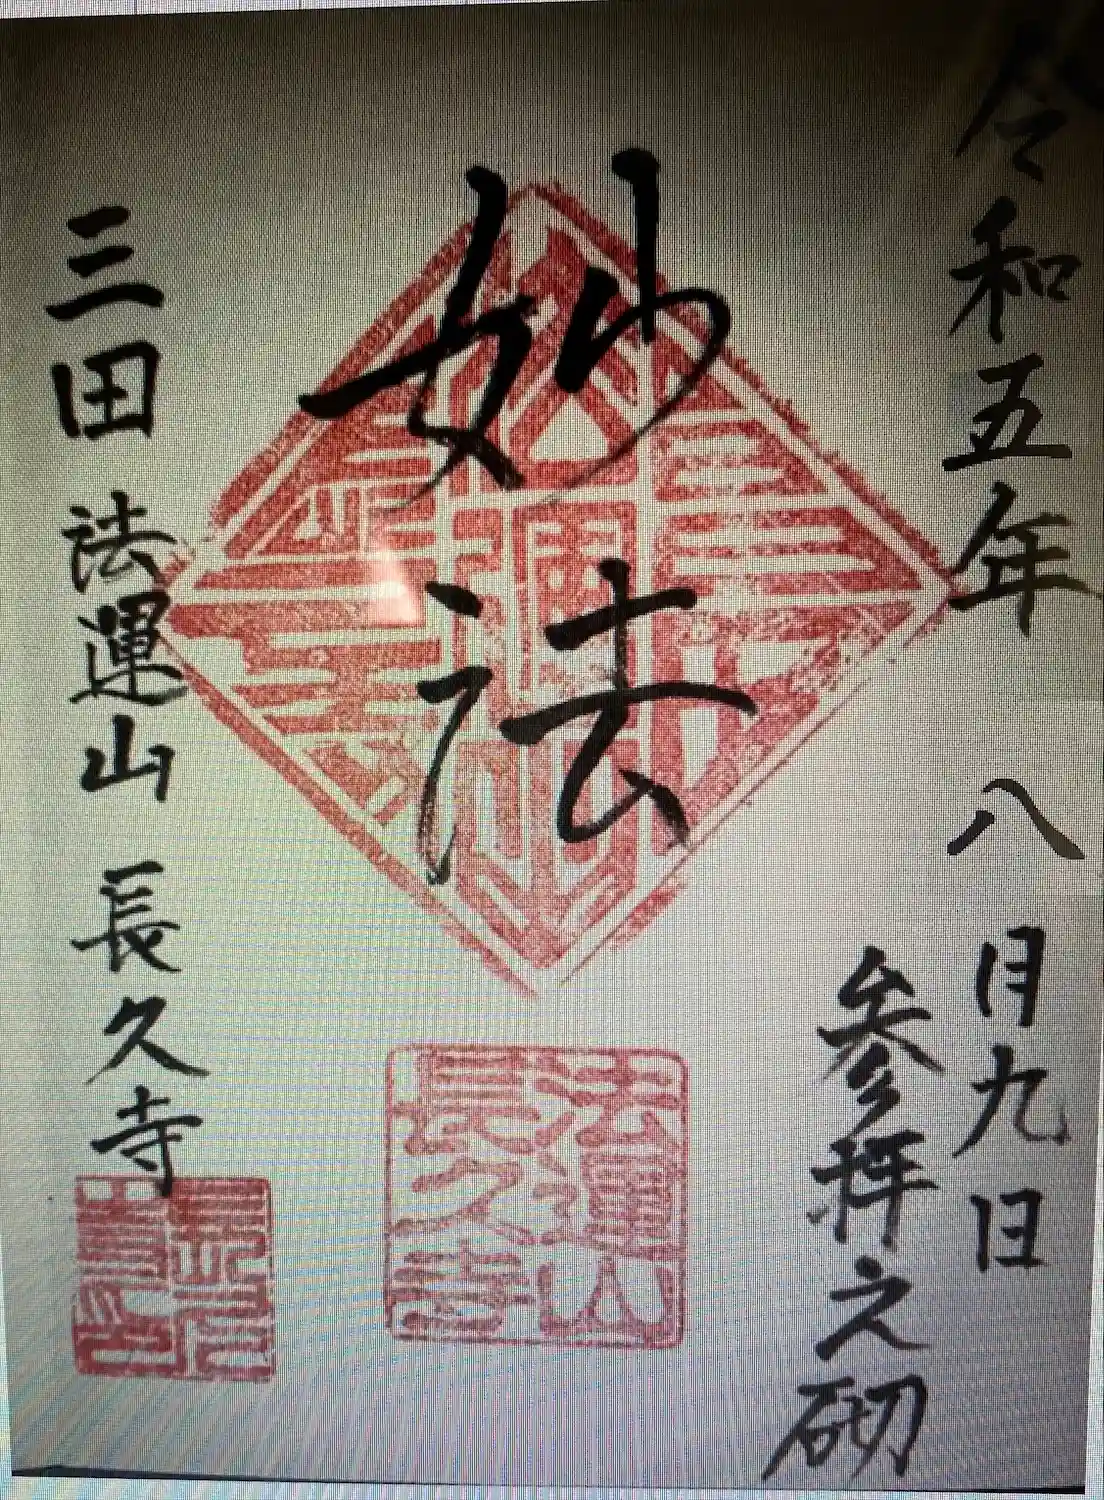 令和五年 八月九日
参拝之砌
妙法
三田 法運山 長久寺
法運山
長久寺